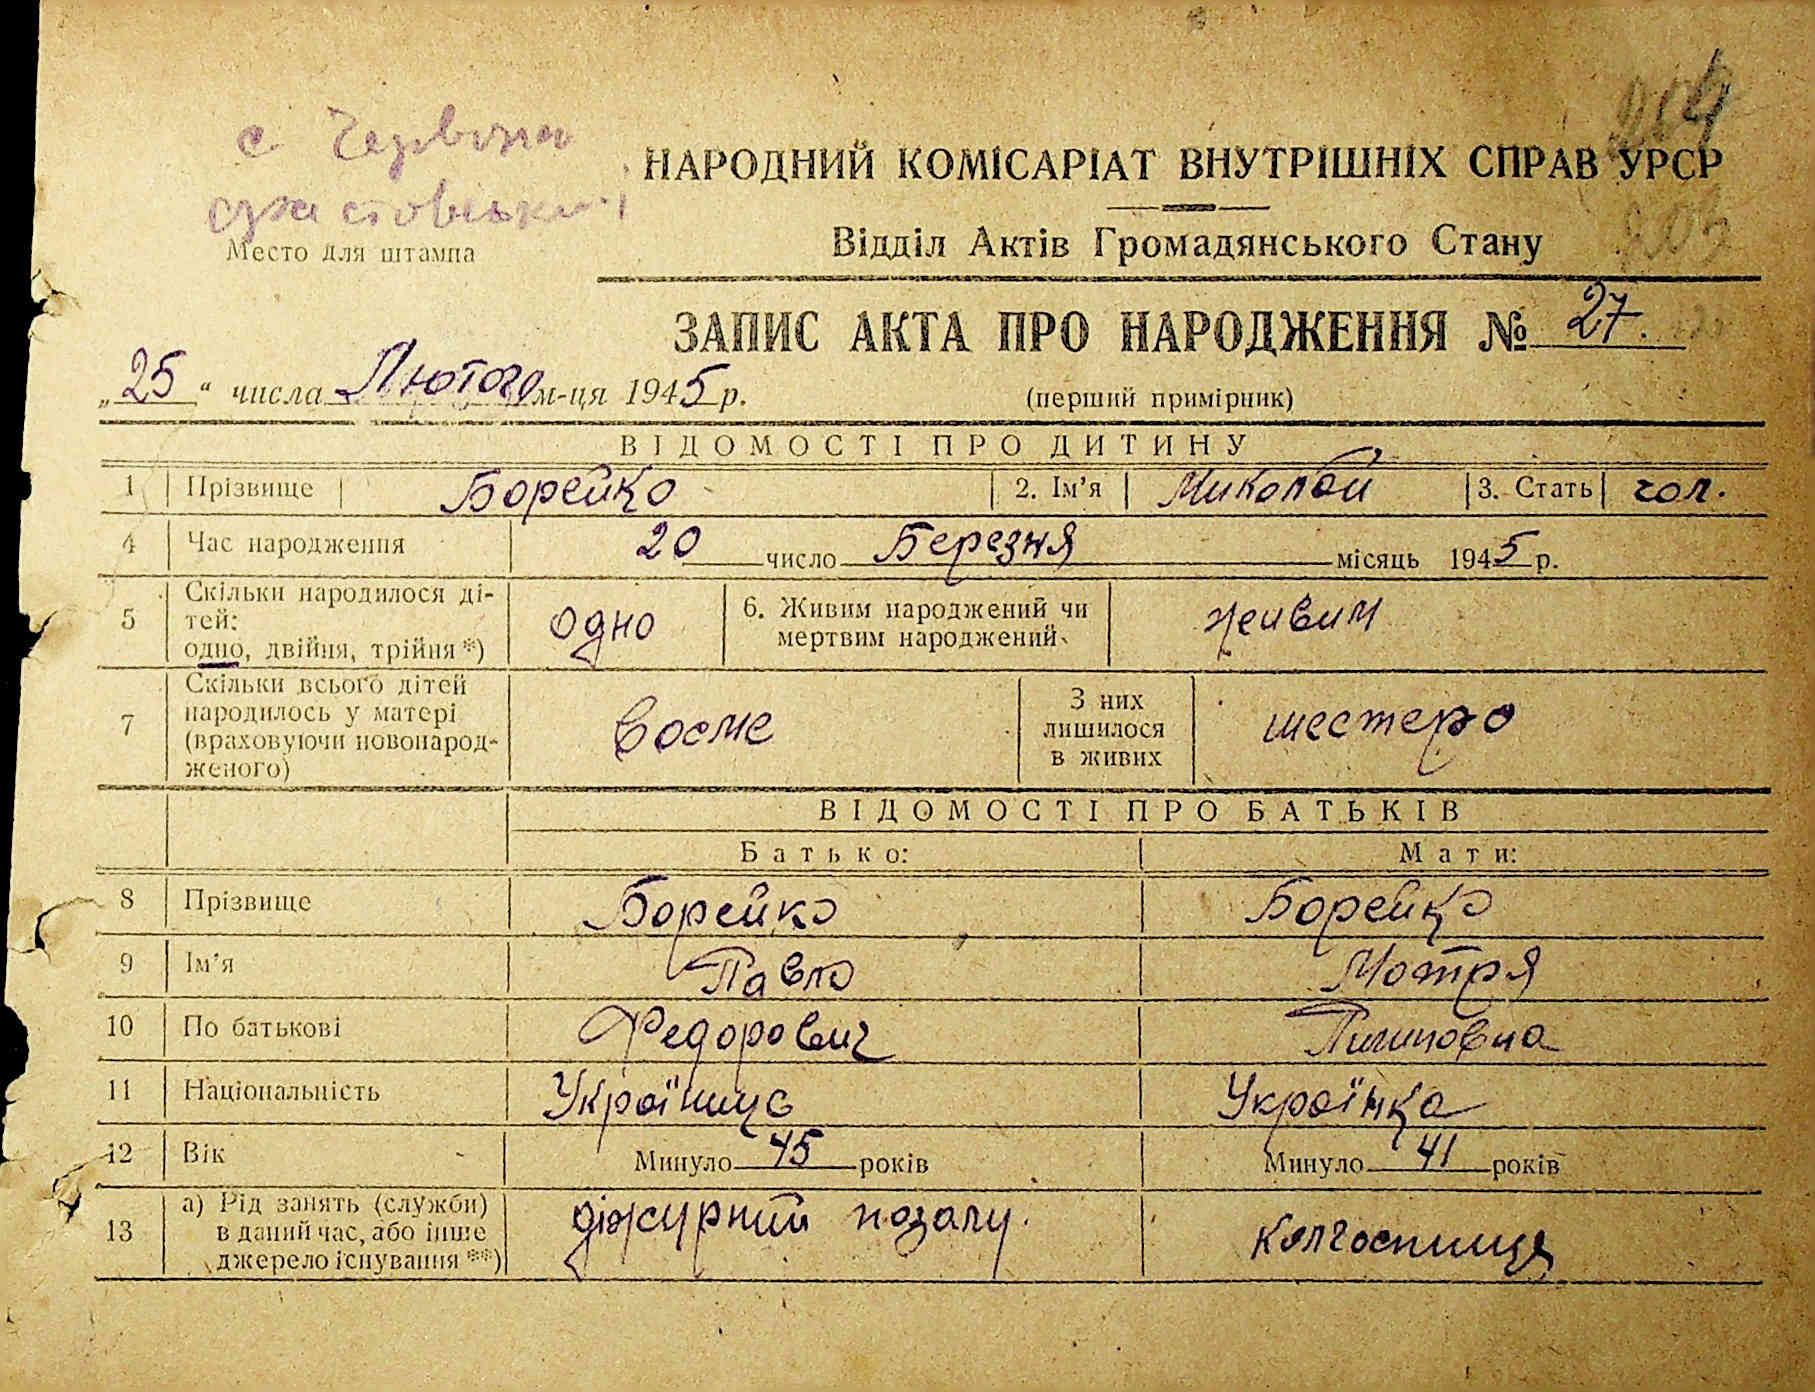 с. Червона
НАРОДНИЙ КОМІСАРІАТ ВНУТРІШНІХ СПРАВ УРСР
Место для штампа
Відділ Актів Громадянського Стану
ЗАПИС АКТА ПРО НАРОДЖЕННЯ № 27.
„25“ числа Лютого м-ця 1945 р.
(перший примірник)
ВІДОМОСТІ ПРО ДИТИНУ
1 Прізвище Борейко 2. Ім'я Миколай 3. Стать чол.
4 Час народження 20 число Березня місяць 1945 р.
5 Скільки народилося ді-
тей:
одно, двійня, трійня *) одно 6. Живим народжений чи
мертвим народжений живим
7 Скільки всього дітей
народилось у матері
(враховуючи новонарод-
женого) восме З них
лишилося
в живих шестеро
ВІДОМОСТІ ПРО БАТЬКІВ
Батько: Мати:
8 Прізвище Борейко Борейко
9 Ім'я Павло Мотря
10 По батькові Федорович Пилиповна
11 Національність Українец Українка
12 Вік Минуло 45 років Минуло 41 років
13 а) Рід занять (служби)
в даний час, або інше
джерело існування **) діжурний Колгоспниця